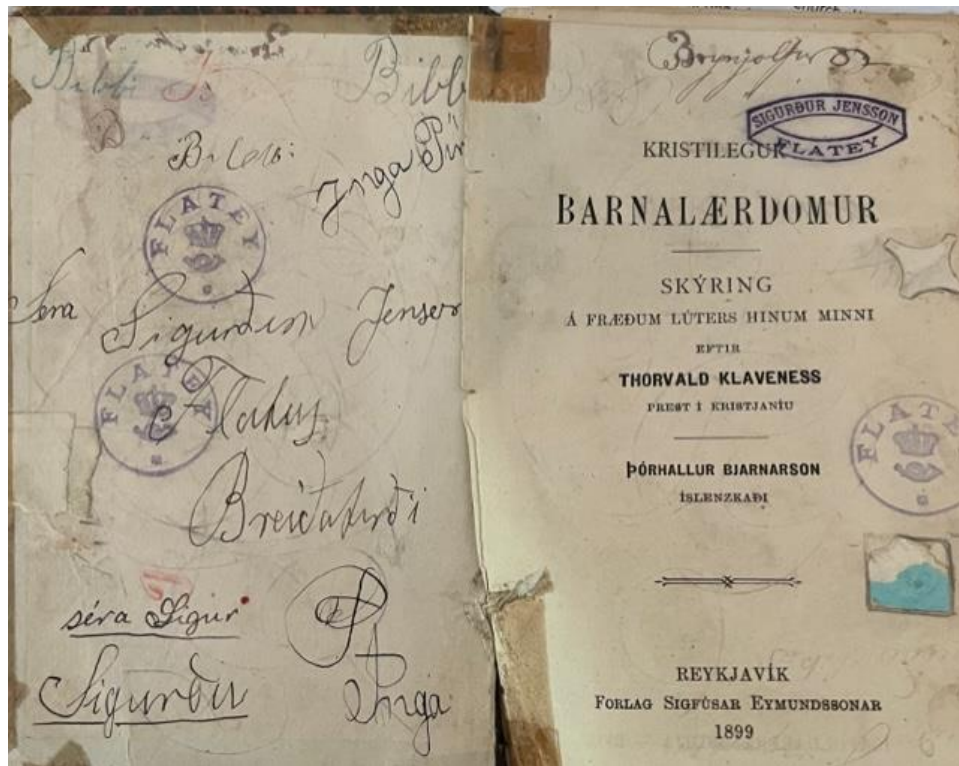 Bibbi
Bibb
Inga
FLATEY
Séra Sigurðsson Jensson
Flatey
FLATEY
Breiðafirði
séra Sigur
Sigurður
Inga
church
Brynjolfur
SIGURÐUR JENSSON
FLATEY
KRISTILEGUR
BARNALÆRDOMUR
SKÝRING
Á FRÆÐUM LÚTERS HINUM MINNI
EFTIR
THORVALD KLAVENESS
PREST Í KRISTJANÍU
FLATE
ÞÓRHALLUR BJARNARSON
ÍSLENZKAÐI
REYKJAVÍK
FORLAG SIGFÚSAR EYMUNDSSONAR
1899